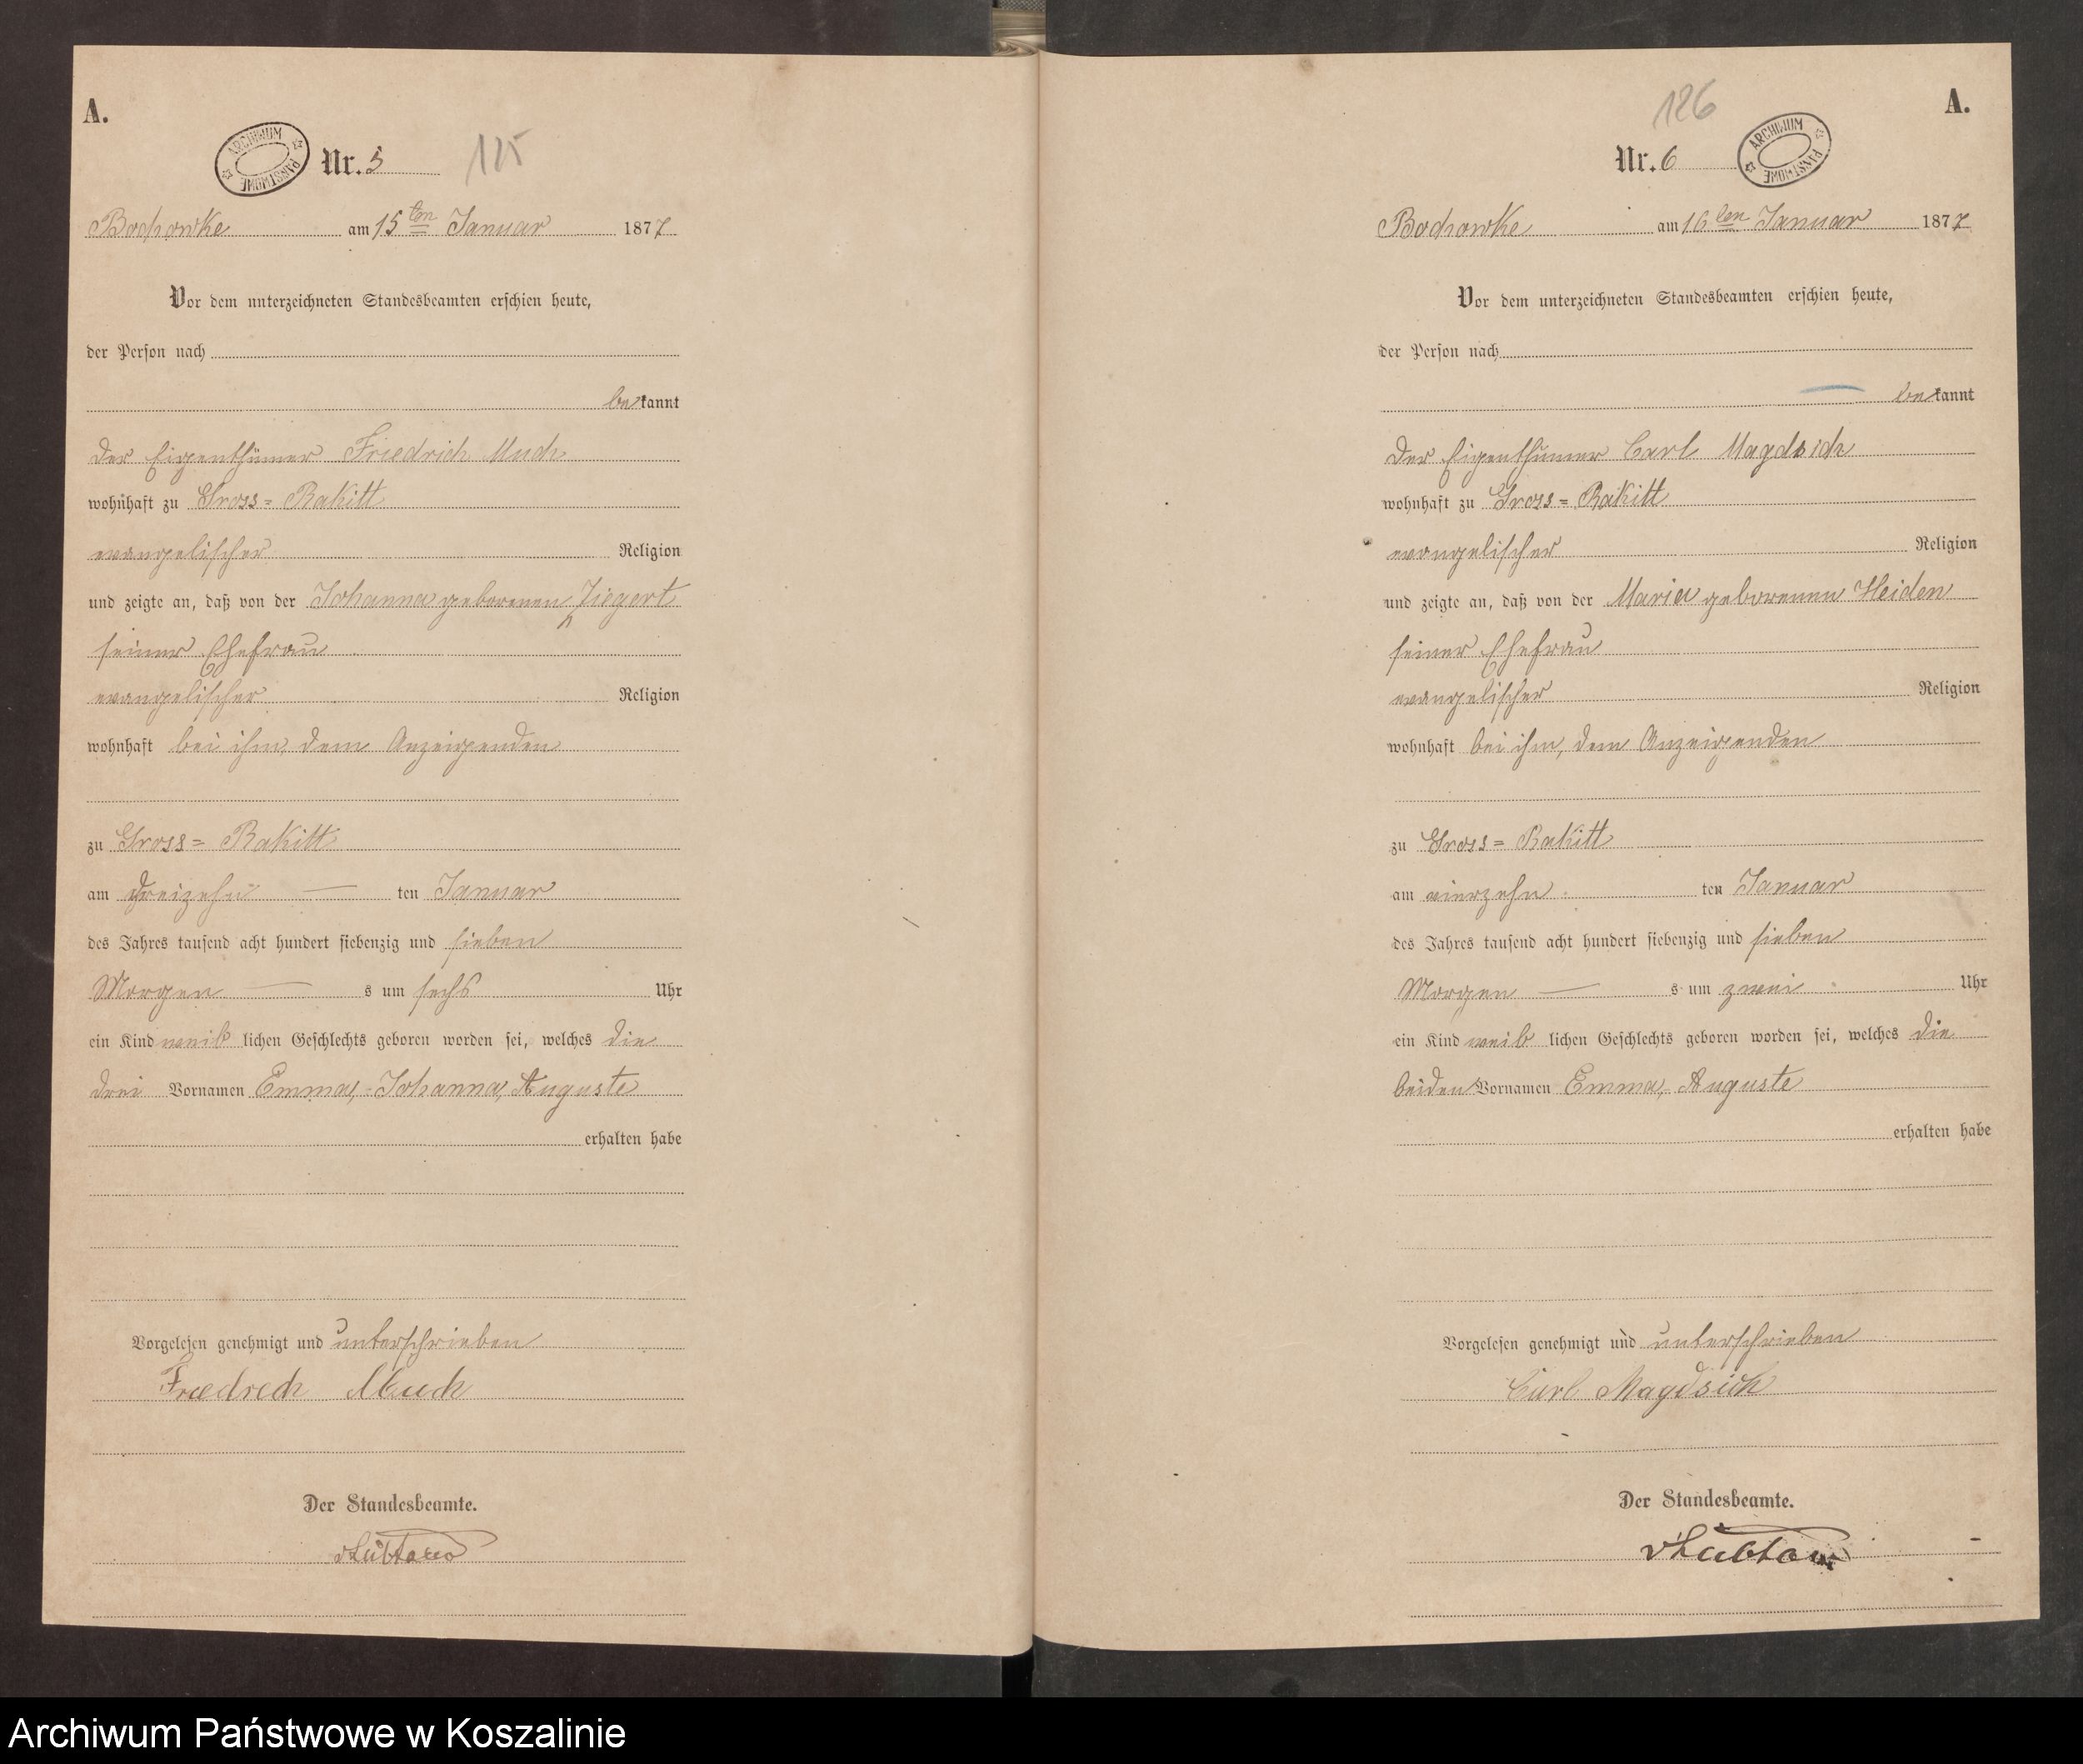 A.
ARCHIWUM PAŃSTWOWE
Nr. 5
125
Bochowke am 15ten Januar 1877
Vor dem unterzeichneten Standesbeamten erschien heute,
der Person nach
bekannt
der Eigenthümer Friedrich Much
wohnhaft zu Gross=Rakitt
evangelischer Religion
und zeigte an, daß von der Johanna geborenen Ziegert
seiner Ehefrau
evangelischer Religion
wohnhaft bei ihm, dem Anzeigenden
zu Gross=Rakitt
am dreizehn ten Januar
des Jahres tausend acht hundert siebenzig und sieben
Morgen s um sechs Uhr
ein Kind weib lichen Geschlechts geboren worden sei, welches die
drei Vornamen Emma, Johanna, Auguste
erhalten habe
Vorgelesen genehmigt und unterschrieben
Friedrich Much
Der Standesbeamte.
126
A.
Nr. 6
ARCHIWUM PAŃSTWOWE
Bochowke am 16ten Januar 1877
Vor dem unterzeichneten Standesbeamten erschien heute,
der Person nach
bekannt
der Eigenthümer Carl Magdsich
wohnhaft zu Gross=Rakitt
evangelischer Religion
und zeigte an, daß von der Maria geborenen Heiden
seiner Ehefrau
evangelischer Religion
wohnhaft bei ihm, dem Anzeigenden
zu Gross=Rakitt
am vierzehn ten Januar
des Jahres tausend acht hundert siebenzig und sieben
Morgen s um zwei Uhr
ein Kind weib lichen Geschlechts geboren worden sei, welches die
beiden Vornamen Emma, Auguste
erhalten habe
Vorgelesen genehmigt und unterschrieben
Carl Magdsich
Der Standesbeamte.
Archiwum Państwowe w Koszalinie